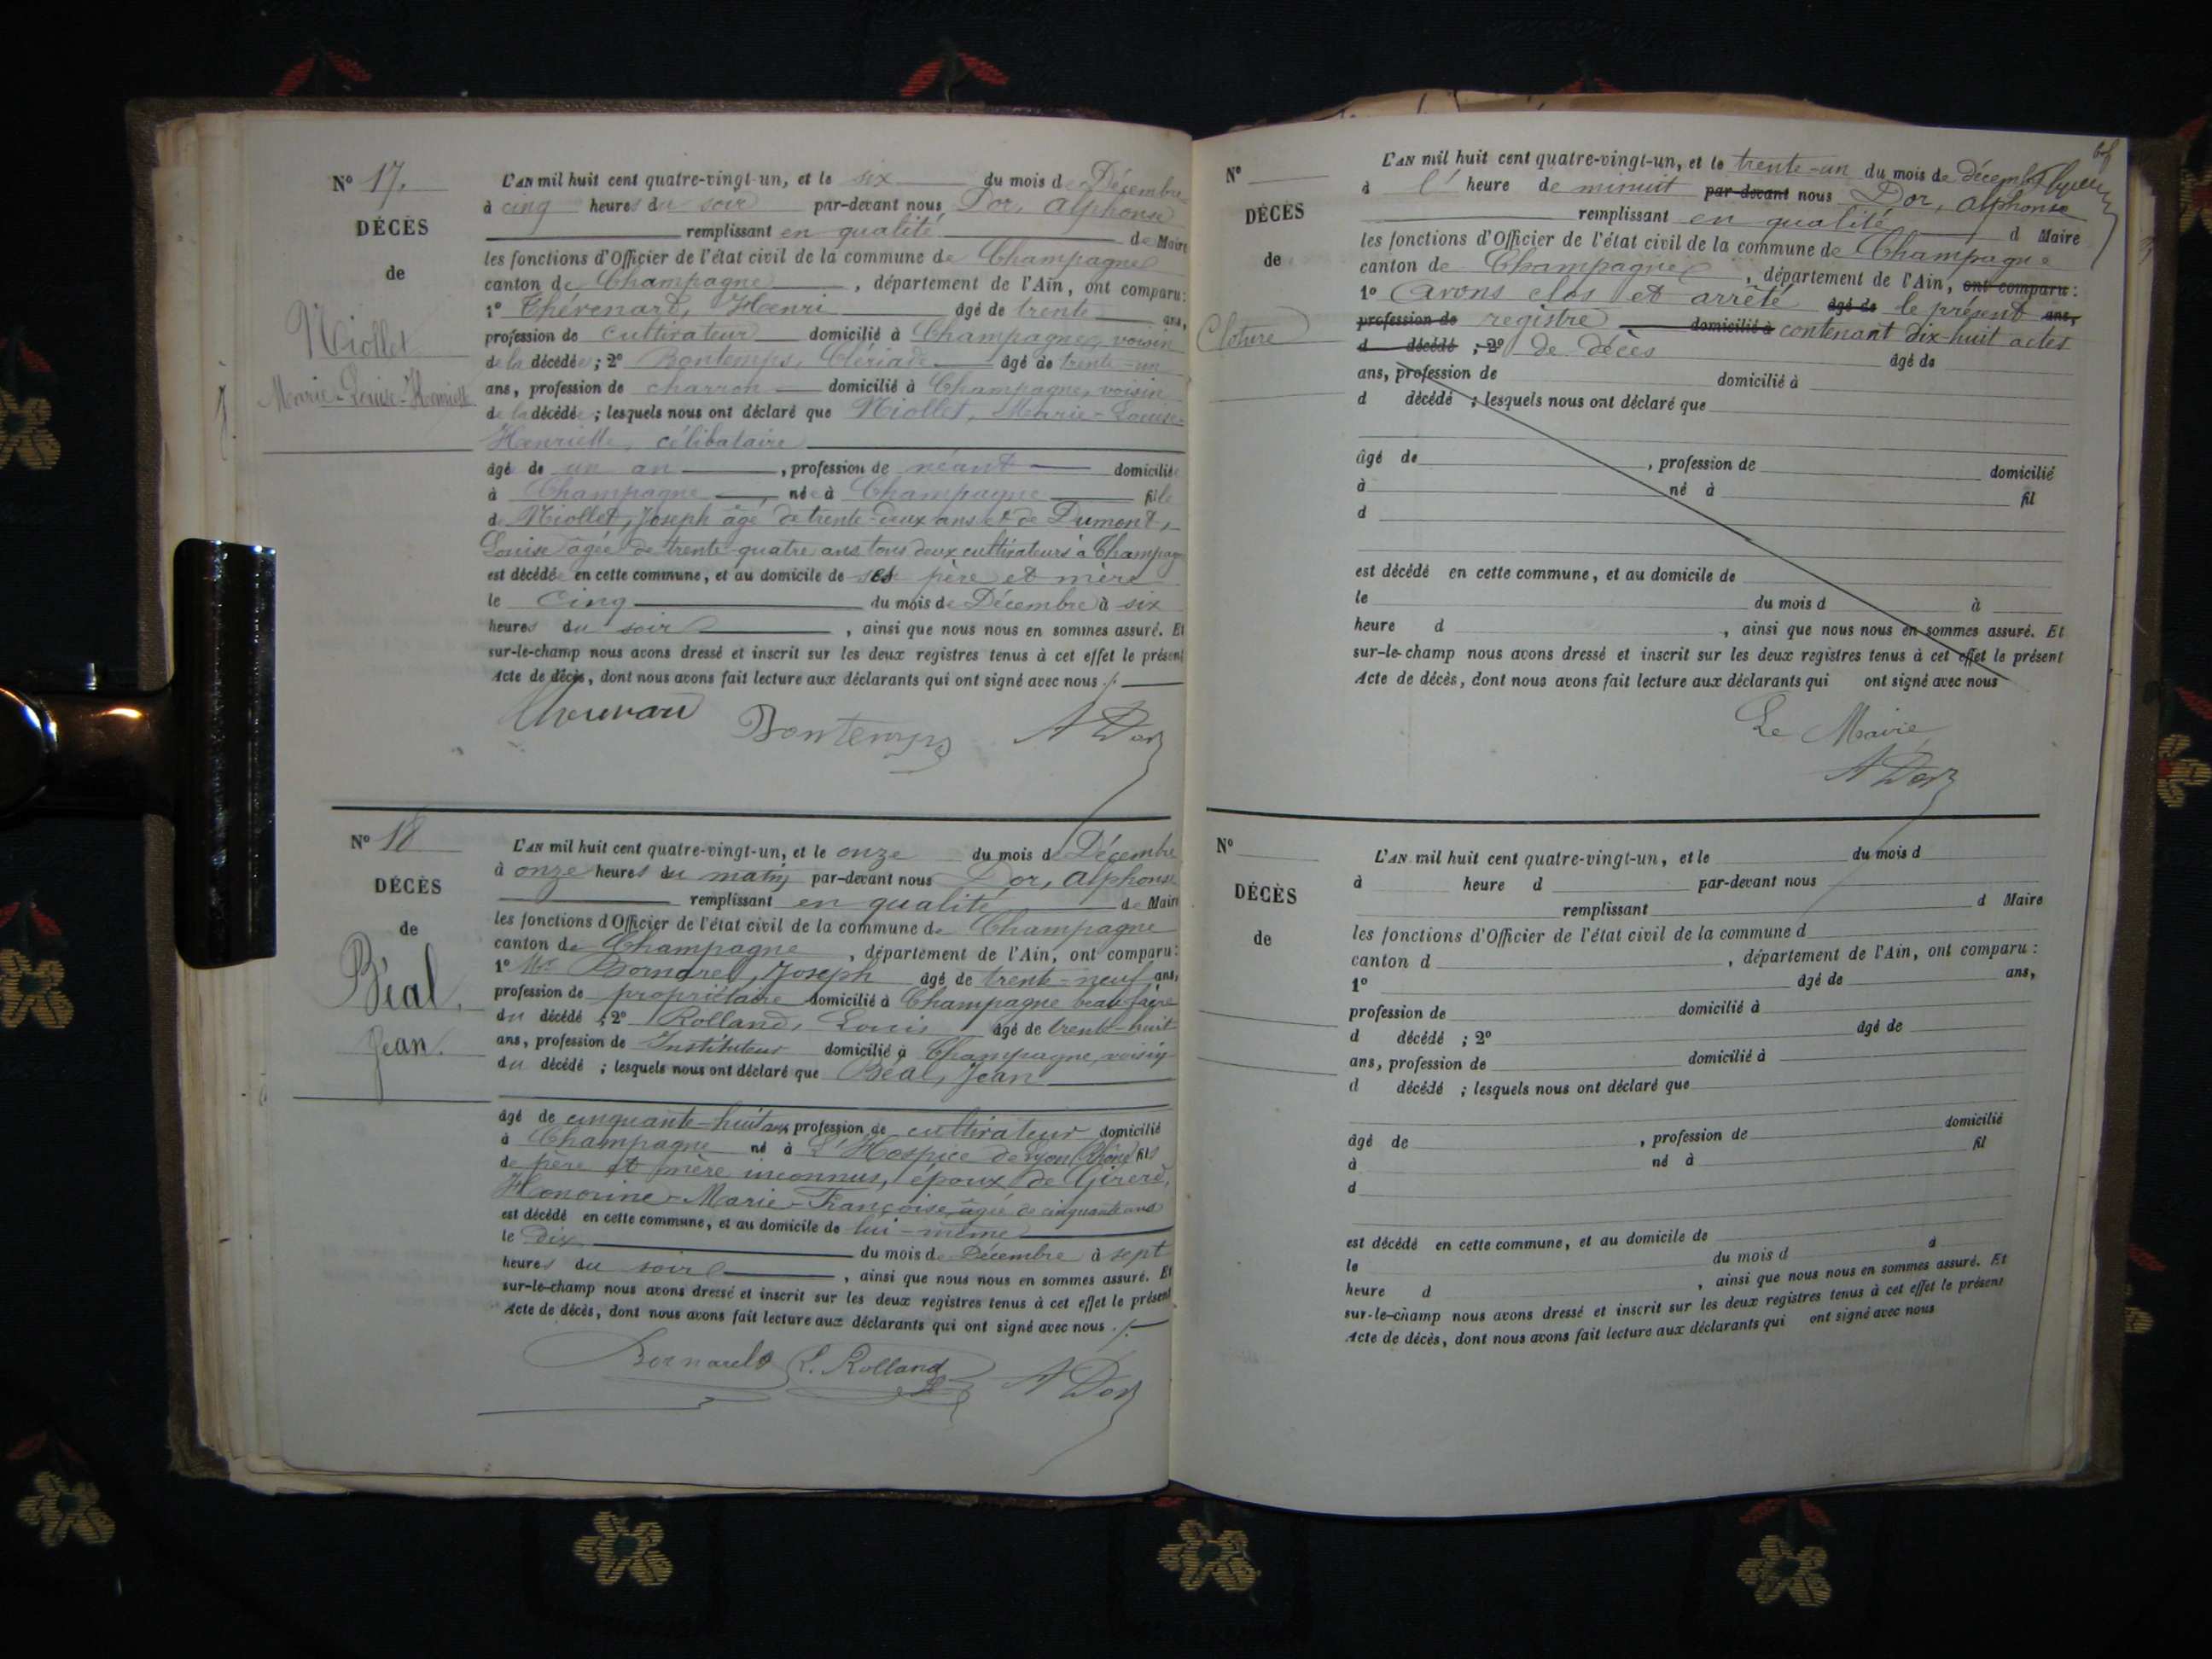 N° 17.
DÉCÈS
de
Niollet
Marie-Louise-Henriette
L'AN mil huit cent quatre-vingt-un, et le six du mois de Décembre
à cinq heures du soir par-devant nous Dor, Alphonse
remplissant en qualité de Maire
les fonctions d'Officier de l'état civil de la commune de Champagne
canton de Champagne, département de l'Ain, ont comparu:
1° Thévenard, Henri âgé de trente ans,
profession de cultivateur domicilié à Champagne, voisin
de la décédée; 2° Bontemps, Clériade âgé de trente-un
ans, profession de charron domicilié à Champagne, voisin
de la décédée; lesquels nous ont déclaré que Niollet, Marie-Louise-
Henriette, célibataire
âgée de un an, profession de néant domiciliée
à Champagne, née à Champagne fille
de Niollet, Joseph âgé de trente-deux ans et de Dumont,
Louise âgée de trente-quatre ans, tous deux cultivateurs à Champagne
est décédée en cette commune, et au domicile de ses père et mère
le cinq du mois de Décembre à six
heures du soir, ainsi que nous nous en sommes assuré. Et
sur-le-champ nous avons dressé et inscrit sur les deux registres tenus à cet effet le présent
Acte de décès, dont nous avons fait lecture aux déclarants qui ont signé avec nous ./.
Thévenard Bontemps A Dor
N° 18
DÉCÈS
de
Béal,
Jean.
L'AN mil huit cent quatre-vingt-un, et le onze du mois de Décembre
à onze heures du matin par-devant nous Dor, Alphonse
remplissant en qualité de Maire
les fonctions d'Officier de l'état civil de la commune de Champagne
canton de Champagne, département de l'Ain, ont comparu:
1° Mr Bornarel, Joseph âgé de trente-neuf ans,
profession de propriétaire domicilié à Champagne beau frère
du décédé; 2° Rolland, Louis âgé de trente-huit
ans, profession de Instituteur domicilié à Champagne, voisin
du décédé; lesquels nous ont déclaré que Béal, Jean
âgé de cinquante-huit ans, profession de cultivateur domicilié
à Champagne né à L'Hospice de Lyon (Rhône) fils
de père et mère inconnus, époux de Girerd,
Honorine-Marie-Françoise âgée de cinquante ans
est décédé en cette commune, et au domicile de lui-même
le dix du mois de Décembre à sept
heures du soir, ainsi que nous nous en sommes assuré. Et
sur-le-champ nous avons dressé et inscrit sur les deux registres tenus à cet effet le présent
Acte de décès, dont nous avons fait lecture aux déclarants qui ont signé avec nous ./.
Bornarel L. Rolland A Dor
N°
DÉCÈS
de
Cloture
L'AN mil huit cent quatre-vingt-un, et le trente-un du mois de décembre
à l' heure de minuit par-devant nous Dor, Alphonse
remplissant en qualité d Maire
les fonctions d'Officier de l'état civil de la commune de Champagne
canton de Champagne, département de l'Ain, ont comparu:
1° avons clos et arrêté âgé de le présent ans,
profession de registre domicilié à contenant dix-huit actes
d décédé; 2° de décès âgé de
ans, profession de domicilié à
d décédé; lesquels nous ont déclaré que
âgé de, profession de domicilié
à né à fil
d
est décédé en cette commune, et au domicile de
le du mois d à
heure d, ainsi que nous nous en sommes assuré. Et
sur-le-champ nous avons dressé et inscrit sur les deux registres tenus à cet effet le présent
Acte de décès, dont nous avons fait lecture aux déclarants qui ont signé avec nous
Le Maire
A Dor
N°
DÉCÈS
de
L'AN mil huit cent quatre-vingt-un, et le du mois d
à heure d par-devant nous
remplissant d Maire
les fonctions d'Officier de l'état civil de la commune d
canton d, département de l'Ain, ont comparu:
1° âgé de ans,
profession de domicilié à
d décédé; 2° âgé de
ans, profession de domicilié à
d décédé; lesquels nous ont déclaré que
âgé de, profession de domicilié
à né à fil
d
est décédé en cette commune, et au domicile de
le du mois d à
heure d, ainsi que nous nous en sommes assuré. Et
sur-le-champ nous avons dressé et inscrit sur les deux registres tenus à cet effet le présent
Acte de décès, dont nous avons fait lecture aux déclarants qui ont signé avec nous